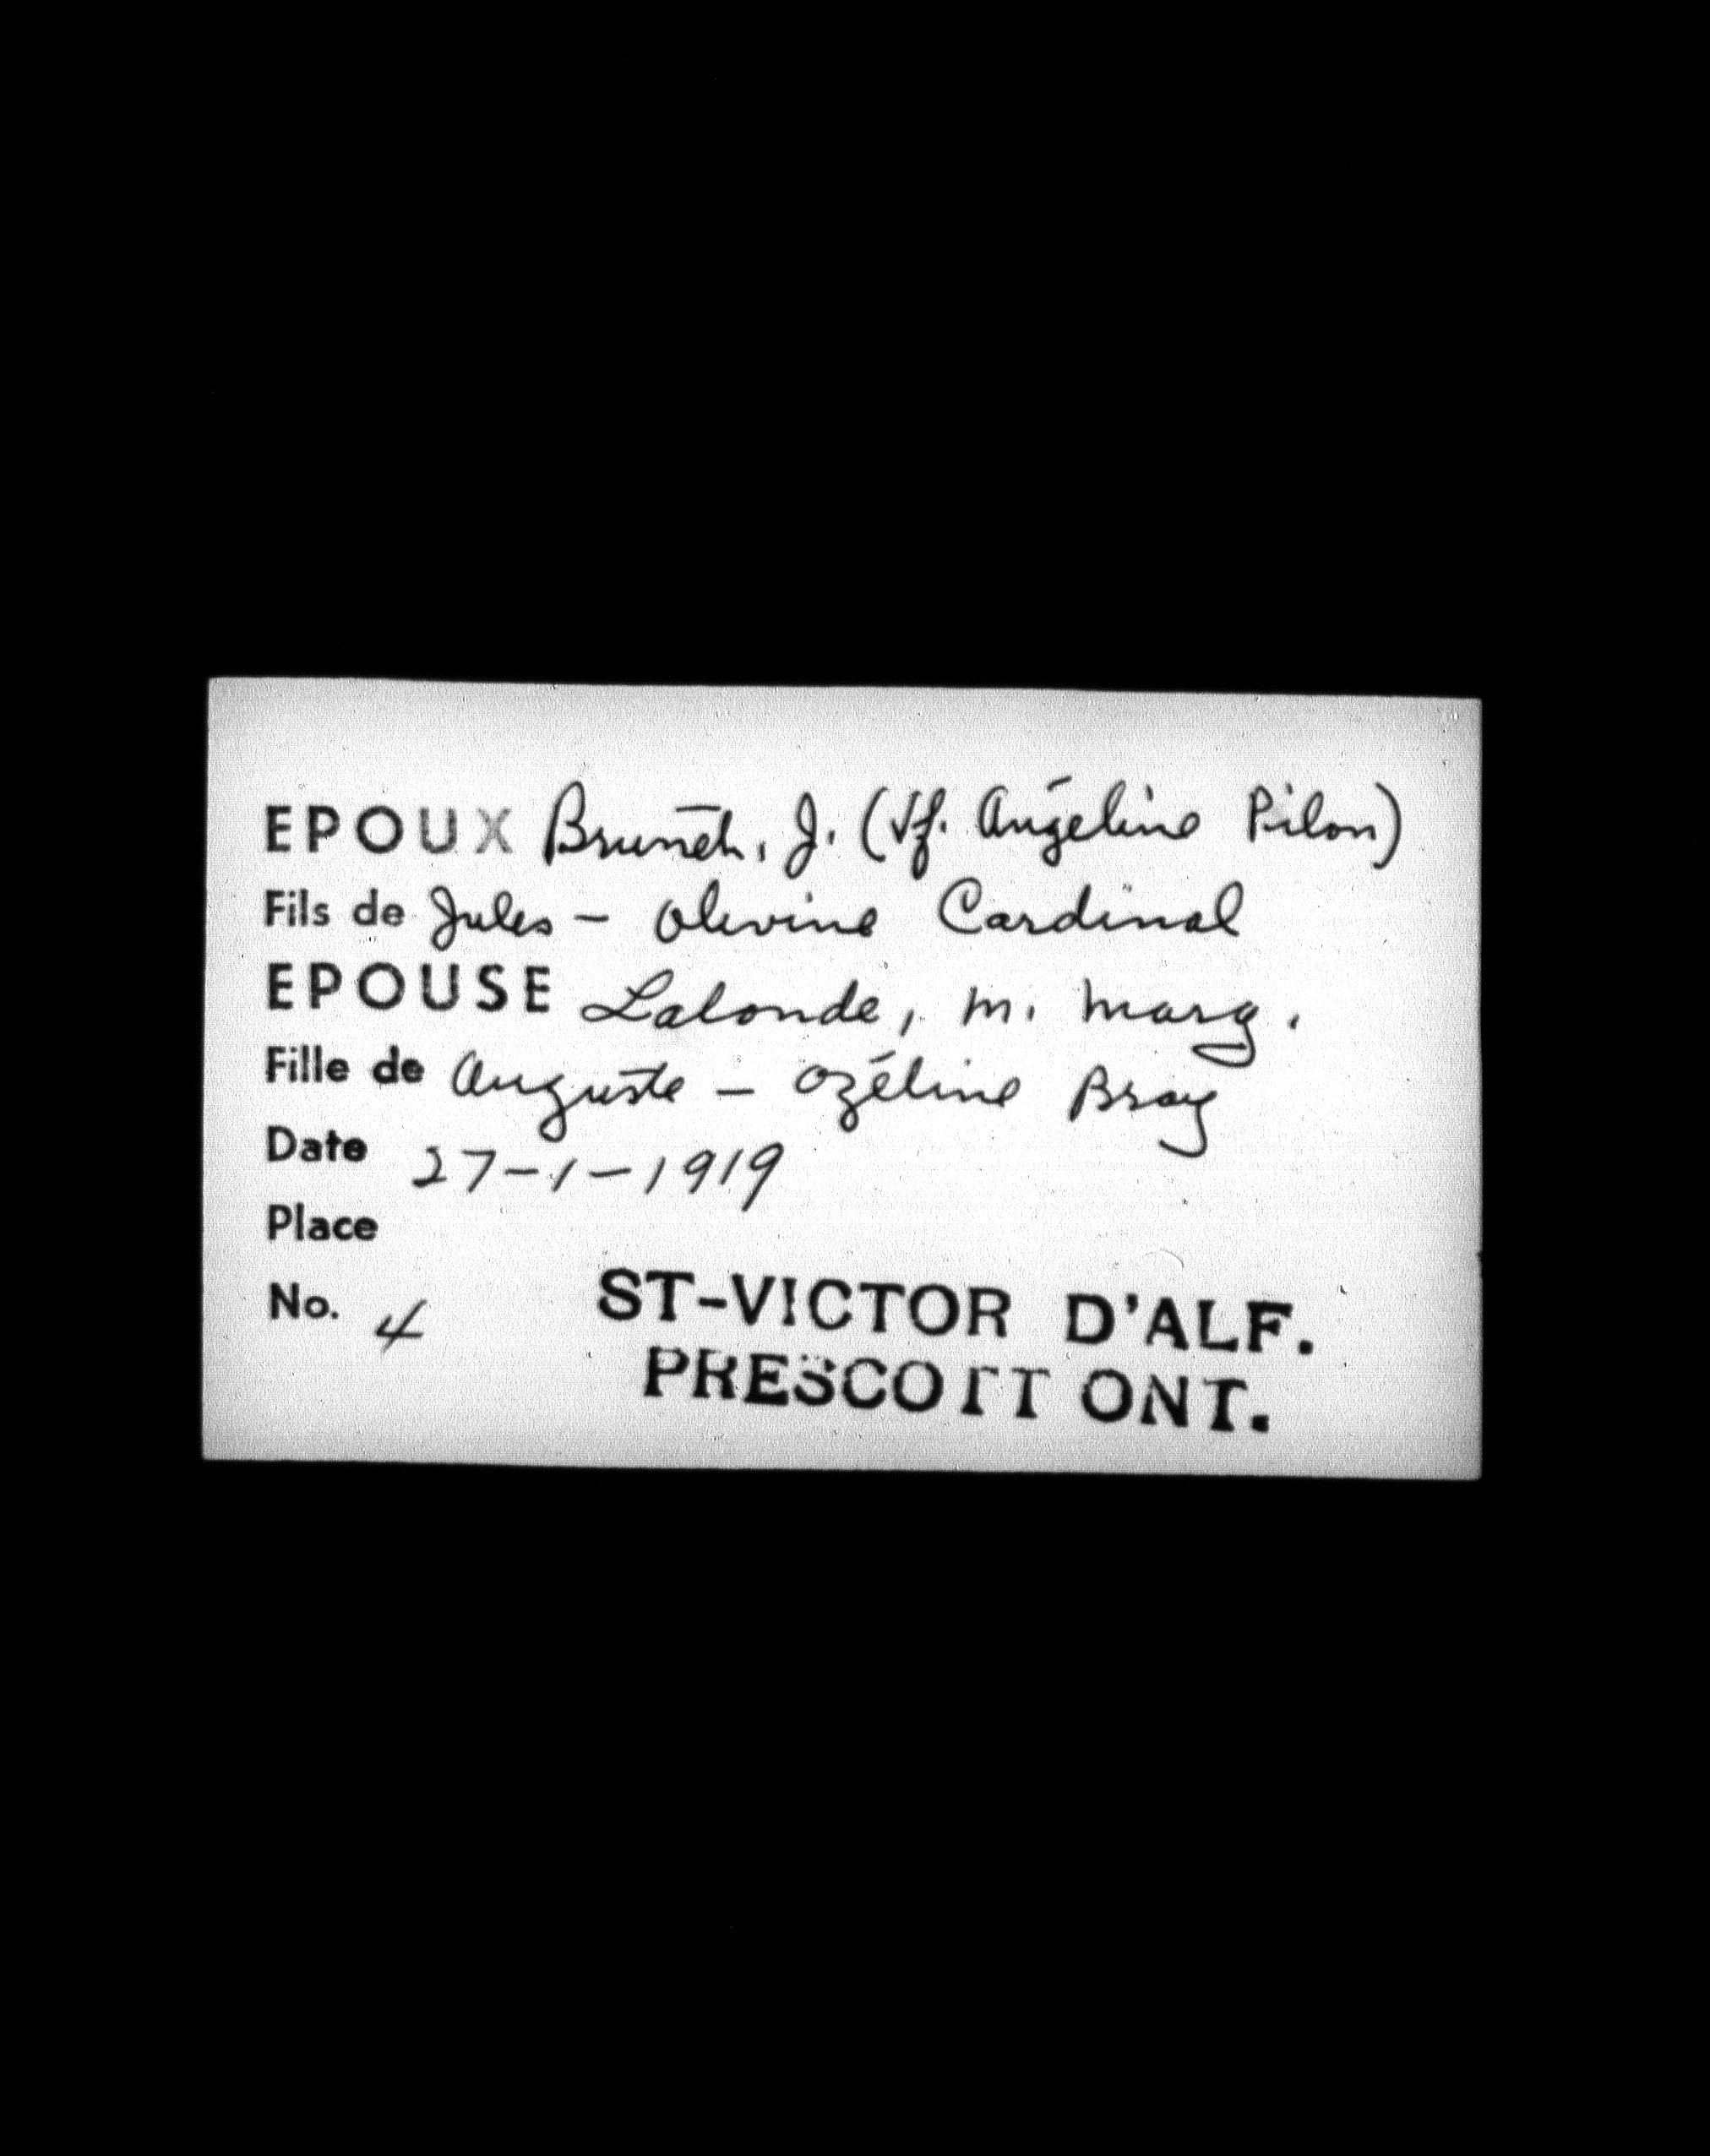 EPOUX Brunet, J. (Vf. Angéline Pilon)
Fils de Jules - Olivine Cardinal
EPOUSE Lalonde, M. Marg.
Fille de Auguste - Ozéline Bray
Date 27-1-1919
Place
No. 4
ST-VICTOR D'ALF.
PRESCOTT ONT.